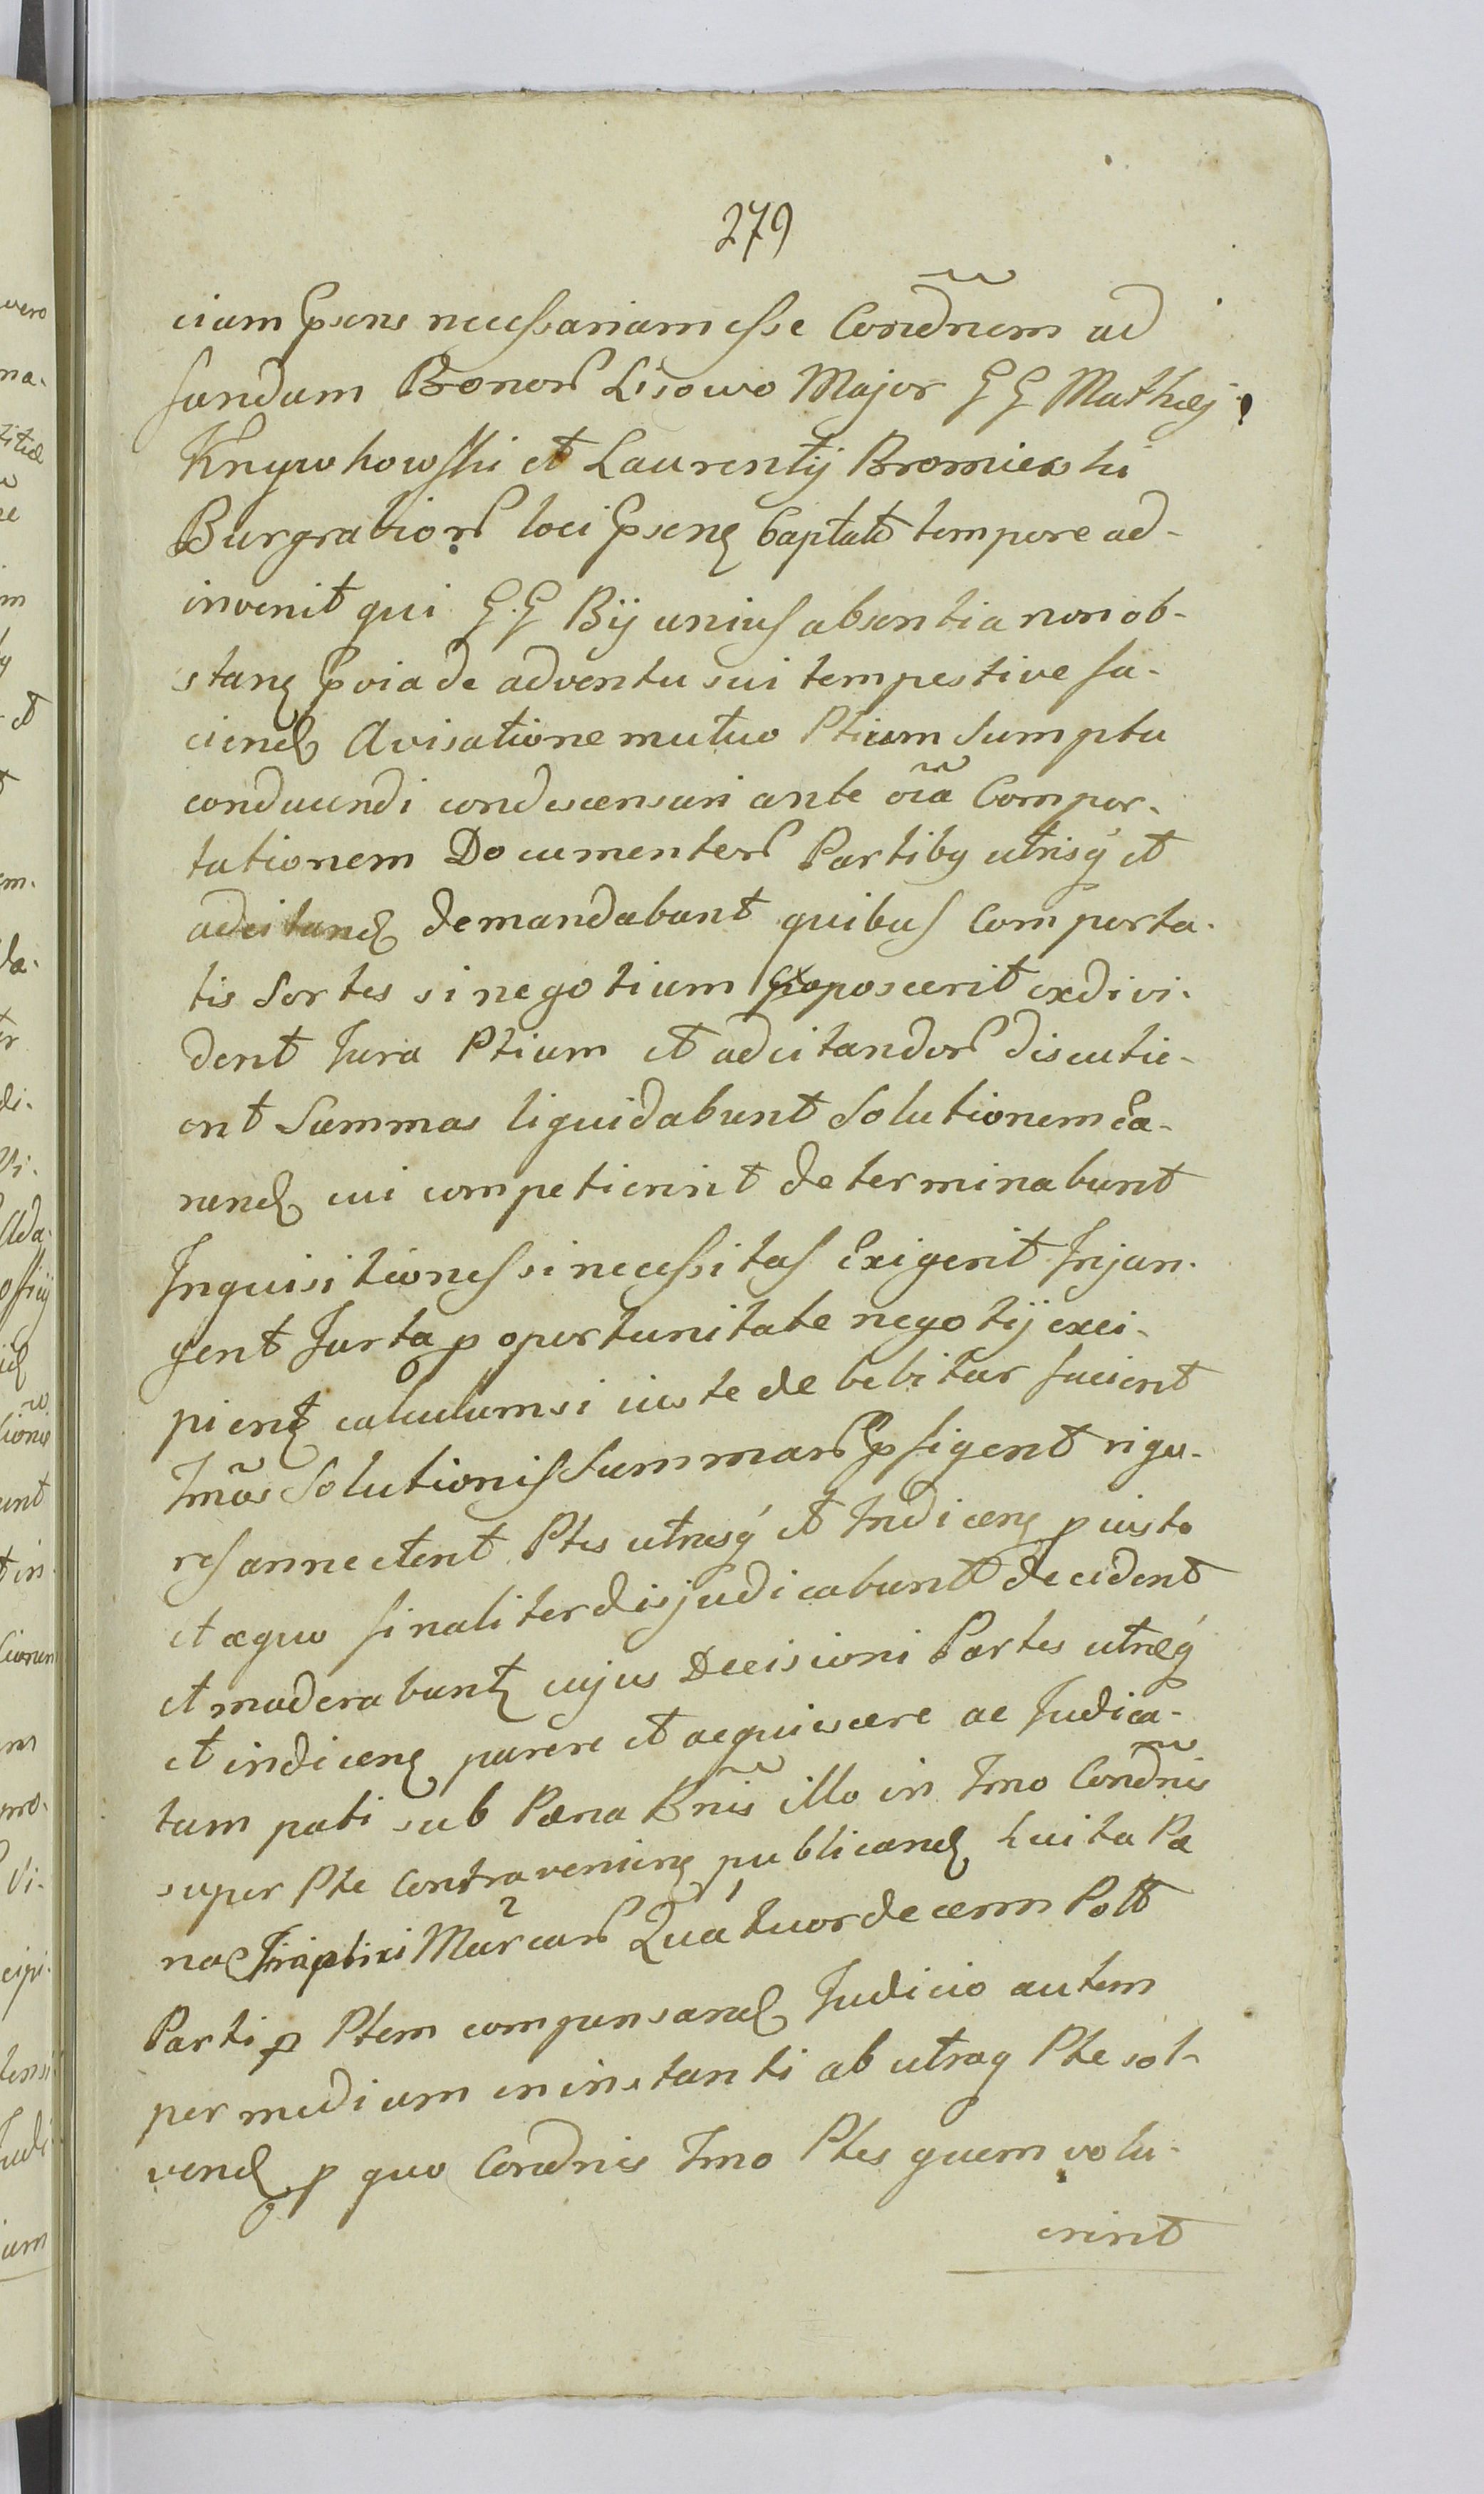 279
ciam Ppsens necessariam esse Condñem ad
fundum Bonor Lisowo Major G G Mathæj
Krzywkowski et Laurentij Bromierski
Burgrabior loci Ppsens Captalt tempore ad-
invenit qui G. G Bij unius absentia non ob-
stan Ppvia de adventu sui tempestive fa-
ciend Avisatione mutuo Ptium Sumptu
conducendi condescensuri ante oĩa Compor-
tationem Documentor Partibq utrisq et
adcitand demandabunt quibus Comporta-
tis Sortes si negotium exposcerit exdivi-
dent Jura Ptium et adcitandor discutie-
ent Summas liquidabunt Solutionem ea-
rund cui competierint determinabunt
Inquisitiones si necessitas Exigerit Injun-
gent Jurta p oportunitate negotij exci-
pient calculum si iuste debebitur facient
Tmõs Solutionis Summar Ppfigent rigo-
res annectent Ptes utrasq et Indicen p iusto
et æquo finaliter disjudicabunt decident
et moderabunt cujus Decisioni Partes utræq
et indicen parere et acquiescere ac Judica-
tum pati sub Pæna Bñis illo in Tmo Condñis
super Pte Contravenien publicand Luita Pæ
na Marcar Quatuordecem Poll
Parti p Ptem compensand Judicio autem
per medium in instanti ab utraq Pte sol-
vend p quo Condnis Tmo Ptes quem volu-
erint